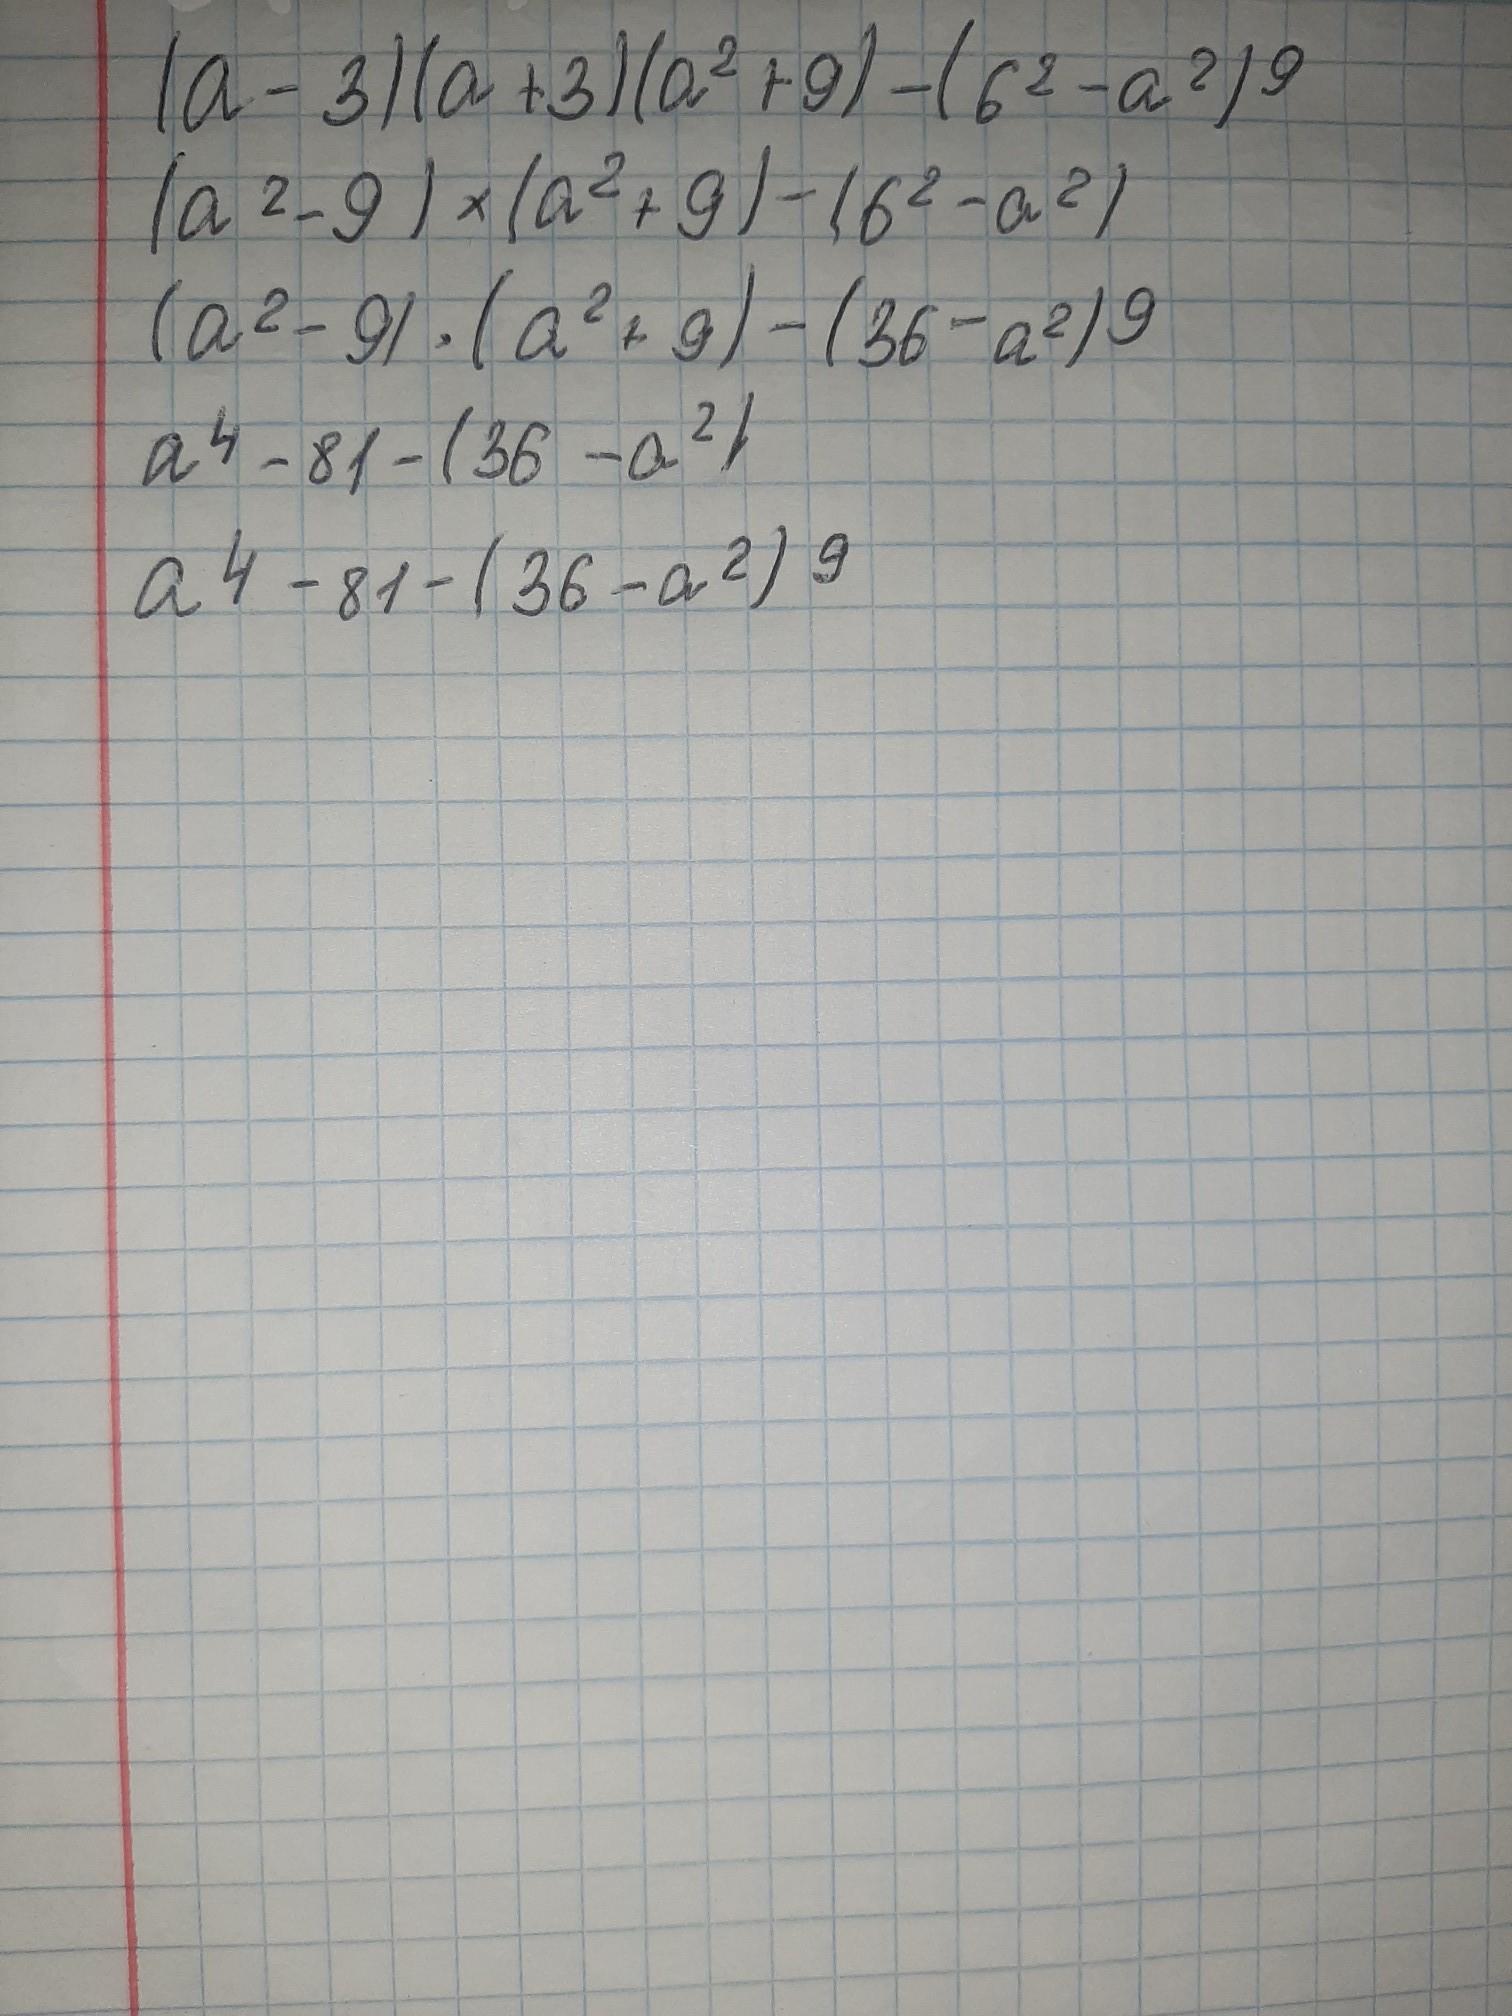 (a-3)(a+3)(a²+9)-(6²-a²)9
(a²-9)×(a²+9)-(6²-a²)
(a²-9)·(a²+9)-(36-a²)9
a⁴-81-(36-a²)
a⁴-81-(36-a²)9